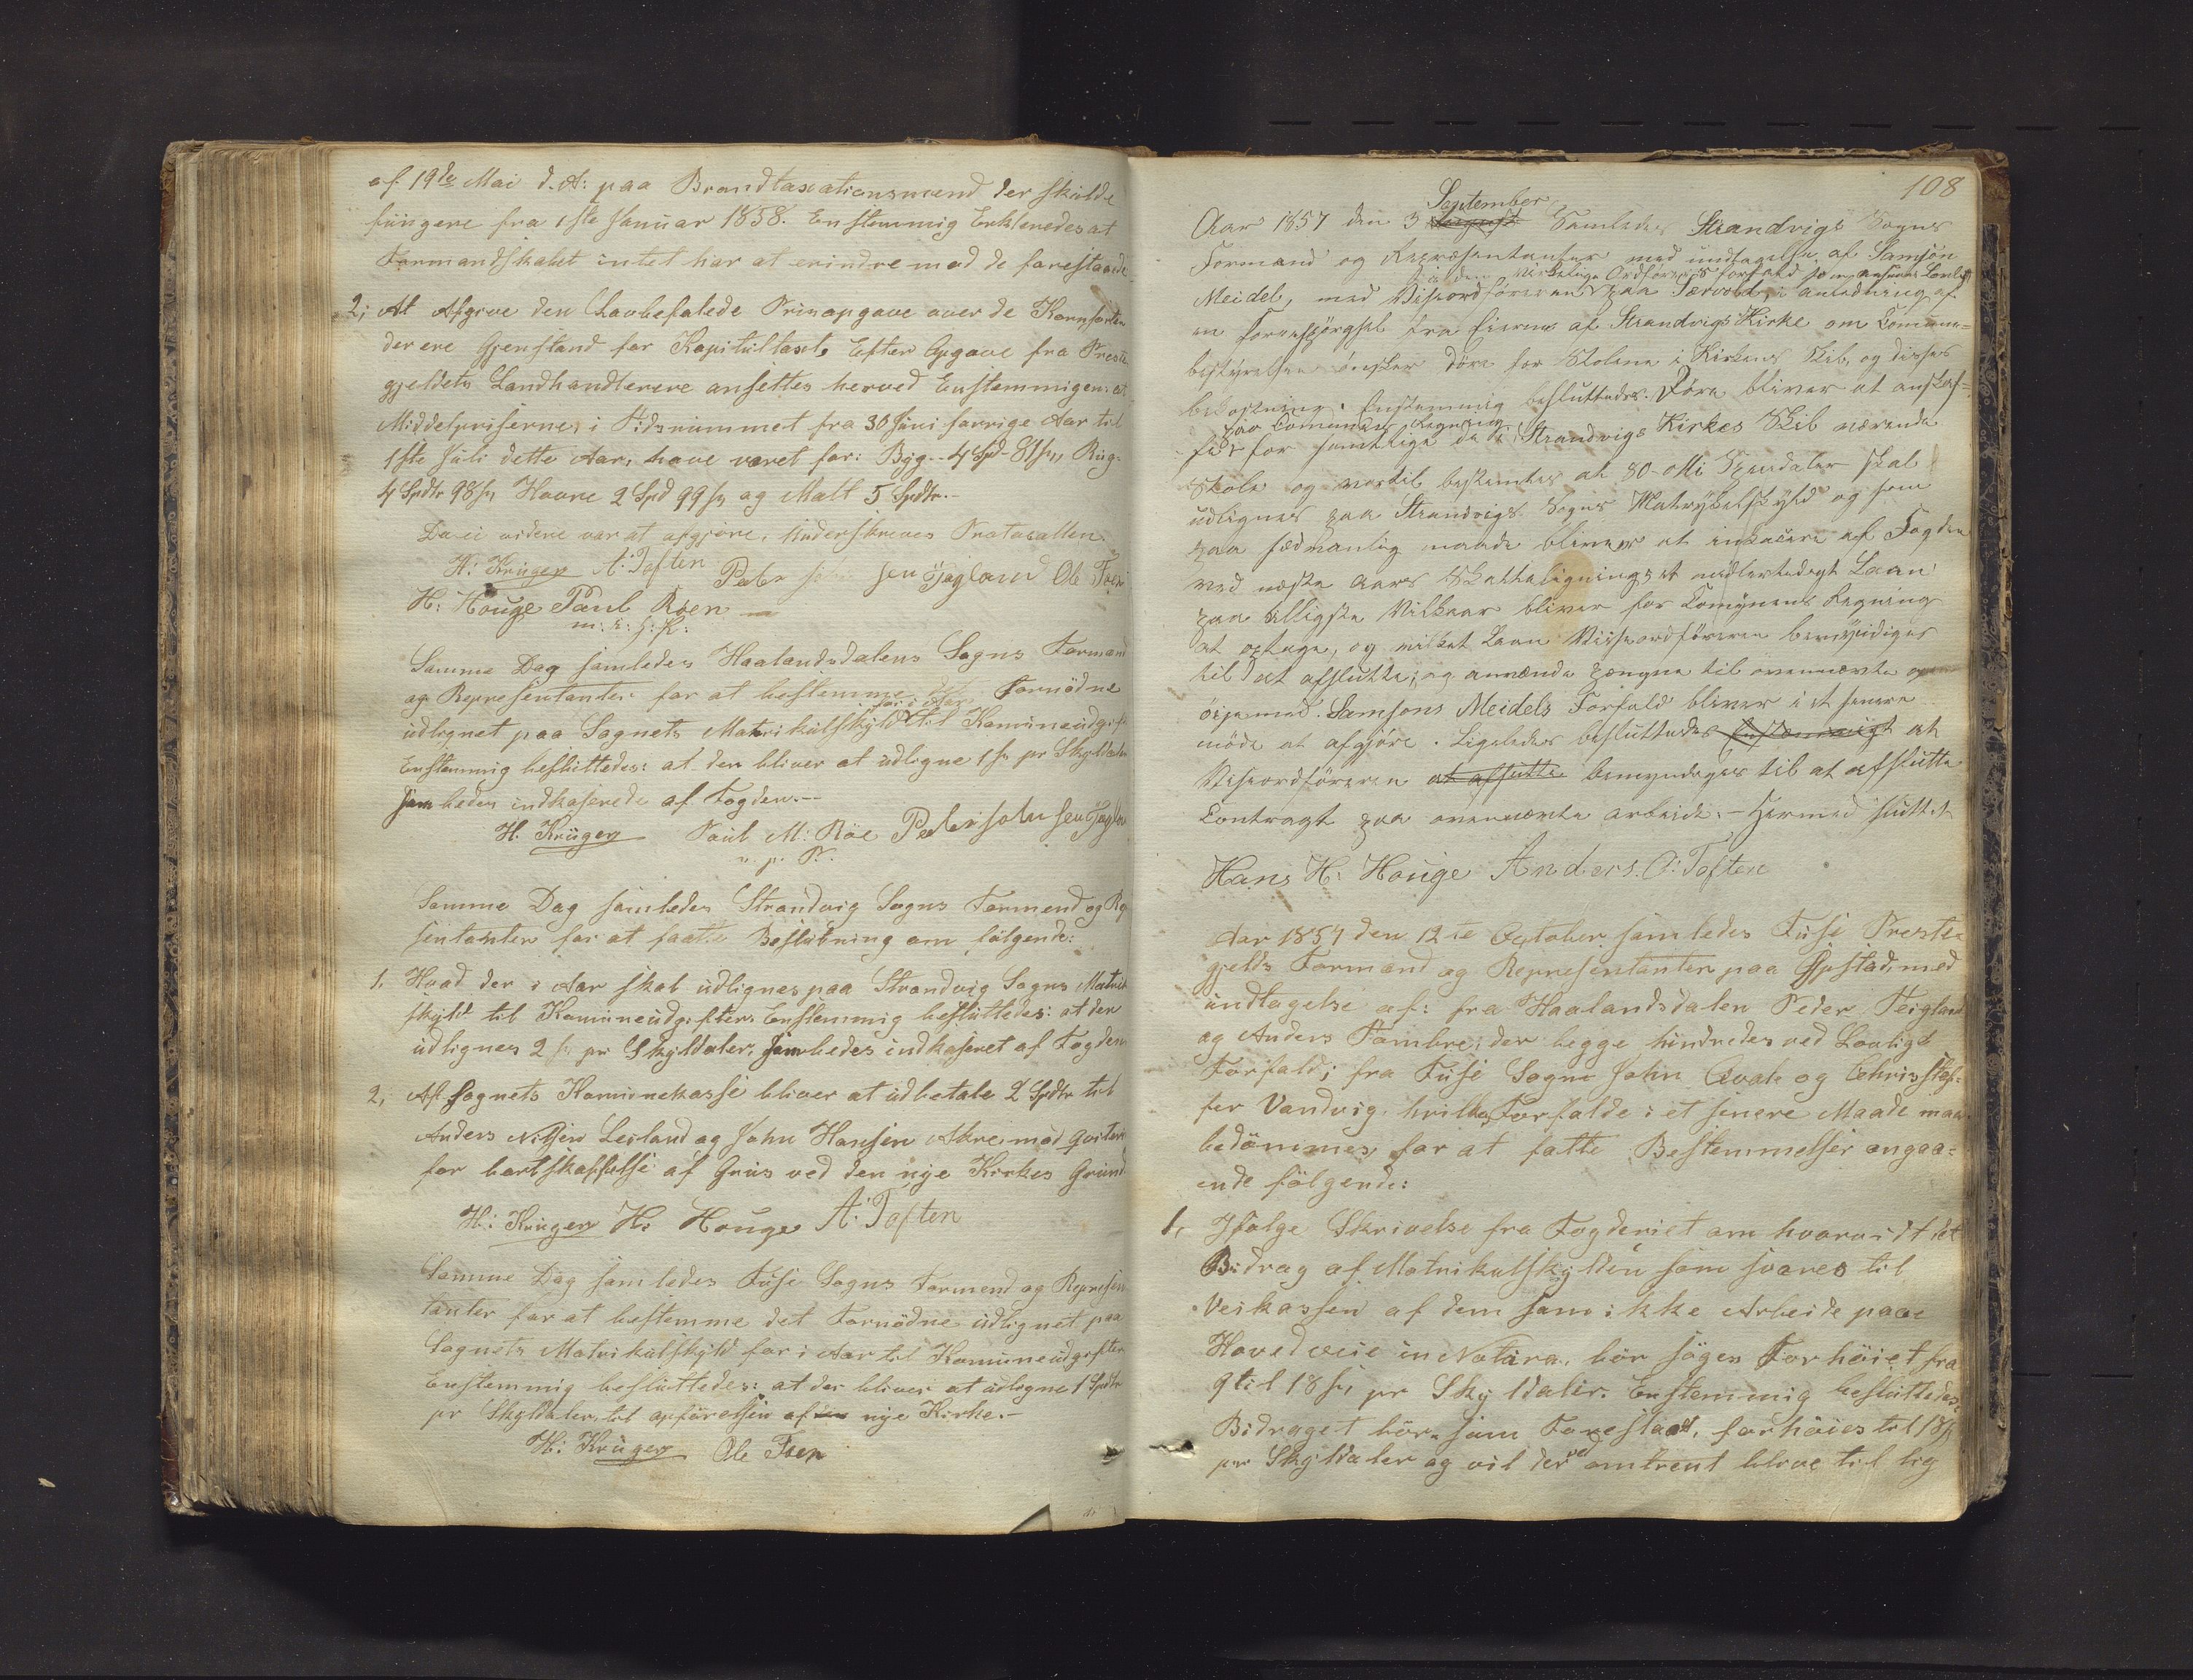 af 19de Mai d. A: paa Brandtaxationsmænd der skulde
fungere fra 1ste Januar 1858. Enstemmig Erklæredes at
Formandskabet intet har at erindre mod de forestaaede
2; At Afgive den Lovbefalede Prisopgave over de Kornsorter
der ere Gjenstand for Kapitultaxt. Efter Opgave fra Preste
gjeldets Landhandlerere ansettes herved Enstemmigen: at
Middelpriserne, i Tidsrummet fra 30 Juni forrige Aar til
1ste Juli dette Aar, have været for: Byg - 4 Spd - 81 s, Rug
4 Spdlr 98 s, Havre 2 Spd 99 s, og Malt 5 Spdlr.-
Da ei videre var at afgjøre, underskreves Protocollen.
H: Krüger A: Toften Peter Johnsen Øygland Ole Toen
H: Houge Paul Røen
m: i: H: P:
Samme Dag samledes Haalandsdalens Sogns Formænd
og Representanter for at bestemme det Fornødne
for i Aar
udlignet paa Sognets Matrikulskyld til Kommuneudgifter
Enstemmig besluttedes: at der bliver at udligne 1 s. pr Skyldaler
som bedes indkaserede af Fogden.-
H. Krüger Paul M: Røe Peter Johnsen Øygland
m. p. P.
Samme Dag samledes Strandvig Sogns Formend og Re
sentanter for at fatte Beslutning om følgende:
1, Hvad der i Aar skal udlignes paa Strandvig Sogns Matrik
skyld til Komuneudgifter. Enstemmig besluttedes: at der
udlignes 2 s. pr Skyldaler. som bedes indkaseret af Fogden
2, Af Sognets Komunekasse bliver at udbetale 2 Spdlr til
Anders Nilsen Leiland og John Hansen Akre, mod Qvitering
for bortskaffelse af Grus ved den nye Kirkes Grund
H: Krüger H: Houge A: Toften
Samme Dag samledes Fuse Sogns Formend og Represen
tanter for at bestemme det Fornødne udlignet paa
Sognets Matrikulskyld for i Aar til Komuneudgifter
Enstemmig besluttedes: at der bliver at udligne 1 Spdlr
pr Skyldaler, til opførelsen af en nye Kirke.-
H: Krüger Ole Toen
108
September
Aar 1857 den 3 August Samledes Strandvigs Sogns
Formænd og Representanter med undtagelse af Samson
i den virkelige Ordførers forfald som ansees Lovligt
Meidel, med Viseordføreren paa Særvold, i anledning af
en Forespørgsel fra Eierne af Strandvigs Kirke om Comune-
bestyrelsen ønsker Døre for Stolene i Kirkens Skib, og disses
bekostning. Enstemmig besluttedes. Døre bliver at anskaf-
paa Comunens Regning
fes for samtlige de i Strandvigs Kirkes Skib værende
Stole og vertil bestemtes at 80-otti Speisdaler skal
udlignes paa Strandvigs Sogns Matrykelskyld og som
paa sedvanlig maade bliver at inkacere af Fogden
ved neste Aars Skatteligning, et midlertidigt Laan
paa billigste Vilkaar bliver for Comynens Regning
at optage, og vilket Laan Viseordføreren bemyndiges
til at afslutte, og anvende pengene til ovennævnte
øiemed. Samsons Meidels Forfald bliver i et senere
møde at afgjøre. Ligeledes besluttedes Enstemmigt at
Viseordføreren at afslutte bemyndiges til at afslutte
Contragt paa ovennevnte arbeide.- Hermed sluttet
Hans H: Houge Anders. O: Toften
Aar 1857 den 12te October samledes Fuse Preste-
gjelds Formænd og Representanter paa Gjestad, med
undtagelse af: fra Haalandsdalen Peder Teigland
og Anders Tombre, der begge hindredes ved Lovligt
Forfald; fra Fuse Sogn John Qvale og Christof-
fer Vandvig hvilkes Forfalde i et senere Maade maa
bedømmes, for at fatte Bestemmelser angaa-
ende følgende:
1, Ifølge Skrivelse fra Fogderiet om hvorvidt et
Bidrag af Matrikulskylden som svares til
Veikassen af dem som ikke Arbeide paa
Hovedveie in Natura, bør søges Forhøiet fra
9 til 18 s, pr Skyldaler. Enstemmig besluttedes:
Bidraget bør, som Foreslaaet, forhøies til 18 s
pr Skyldaler og vil der ved omtrent blive til lig